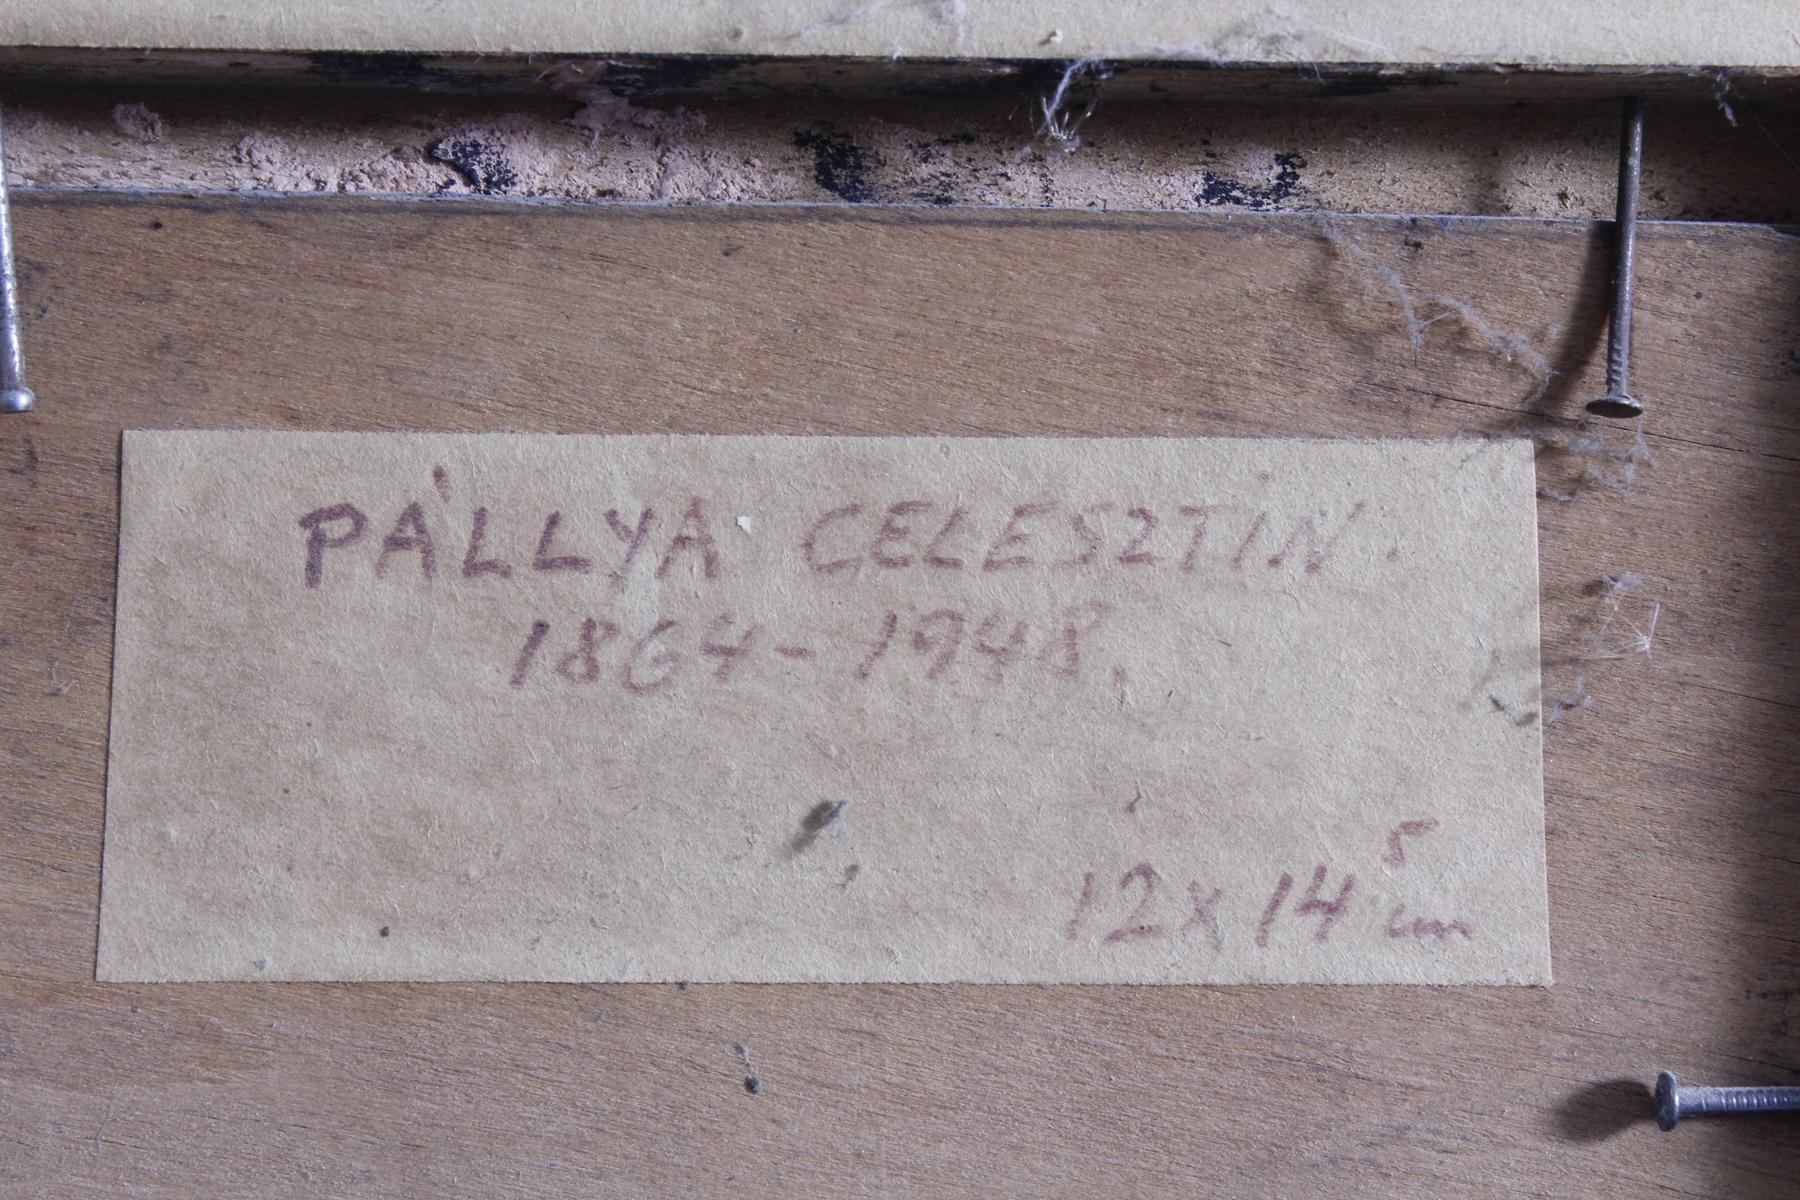 PÁLLYA CELESZTIN.
1864-1948.
12 x 14⁵ cm